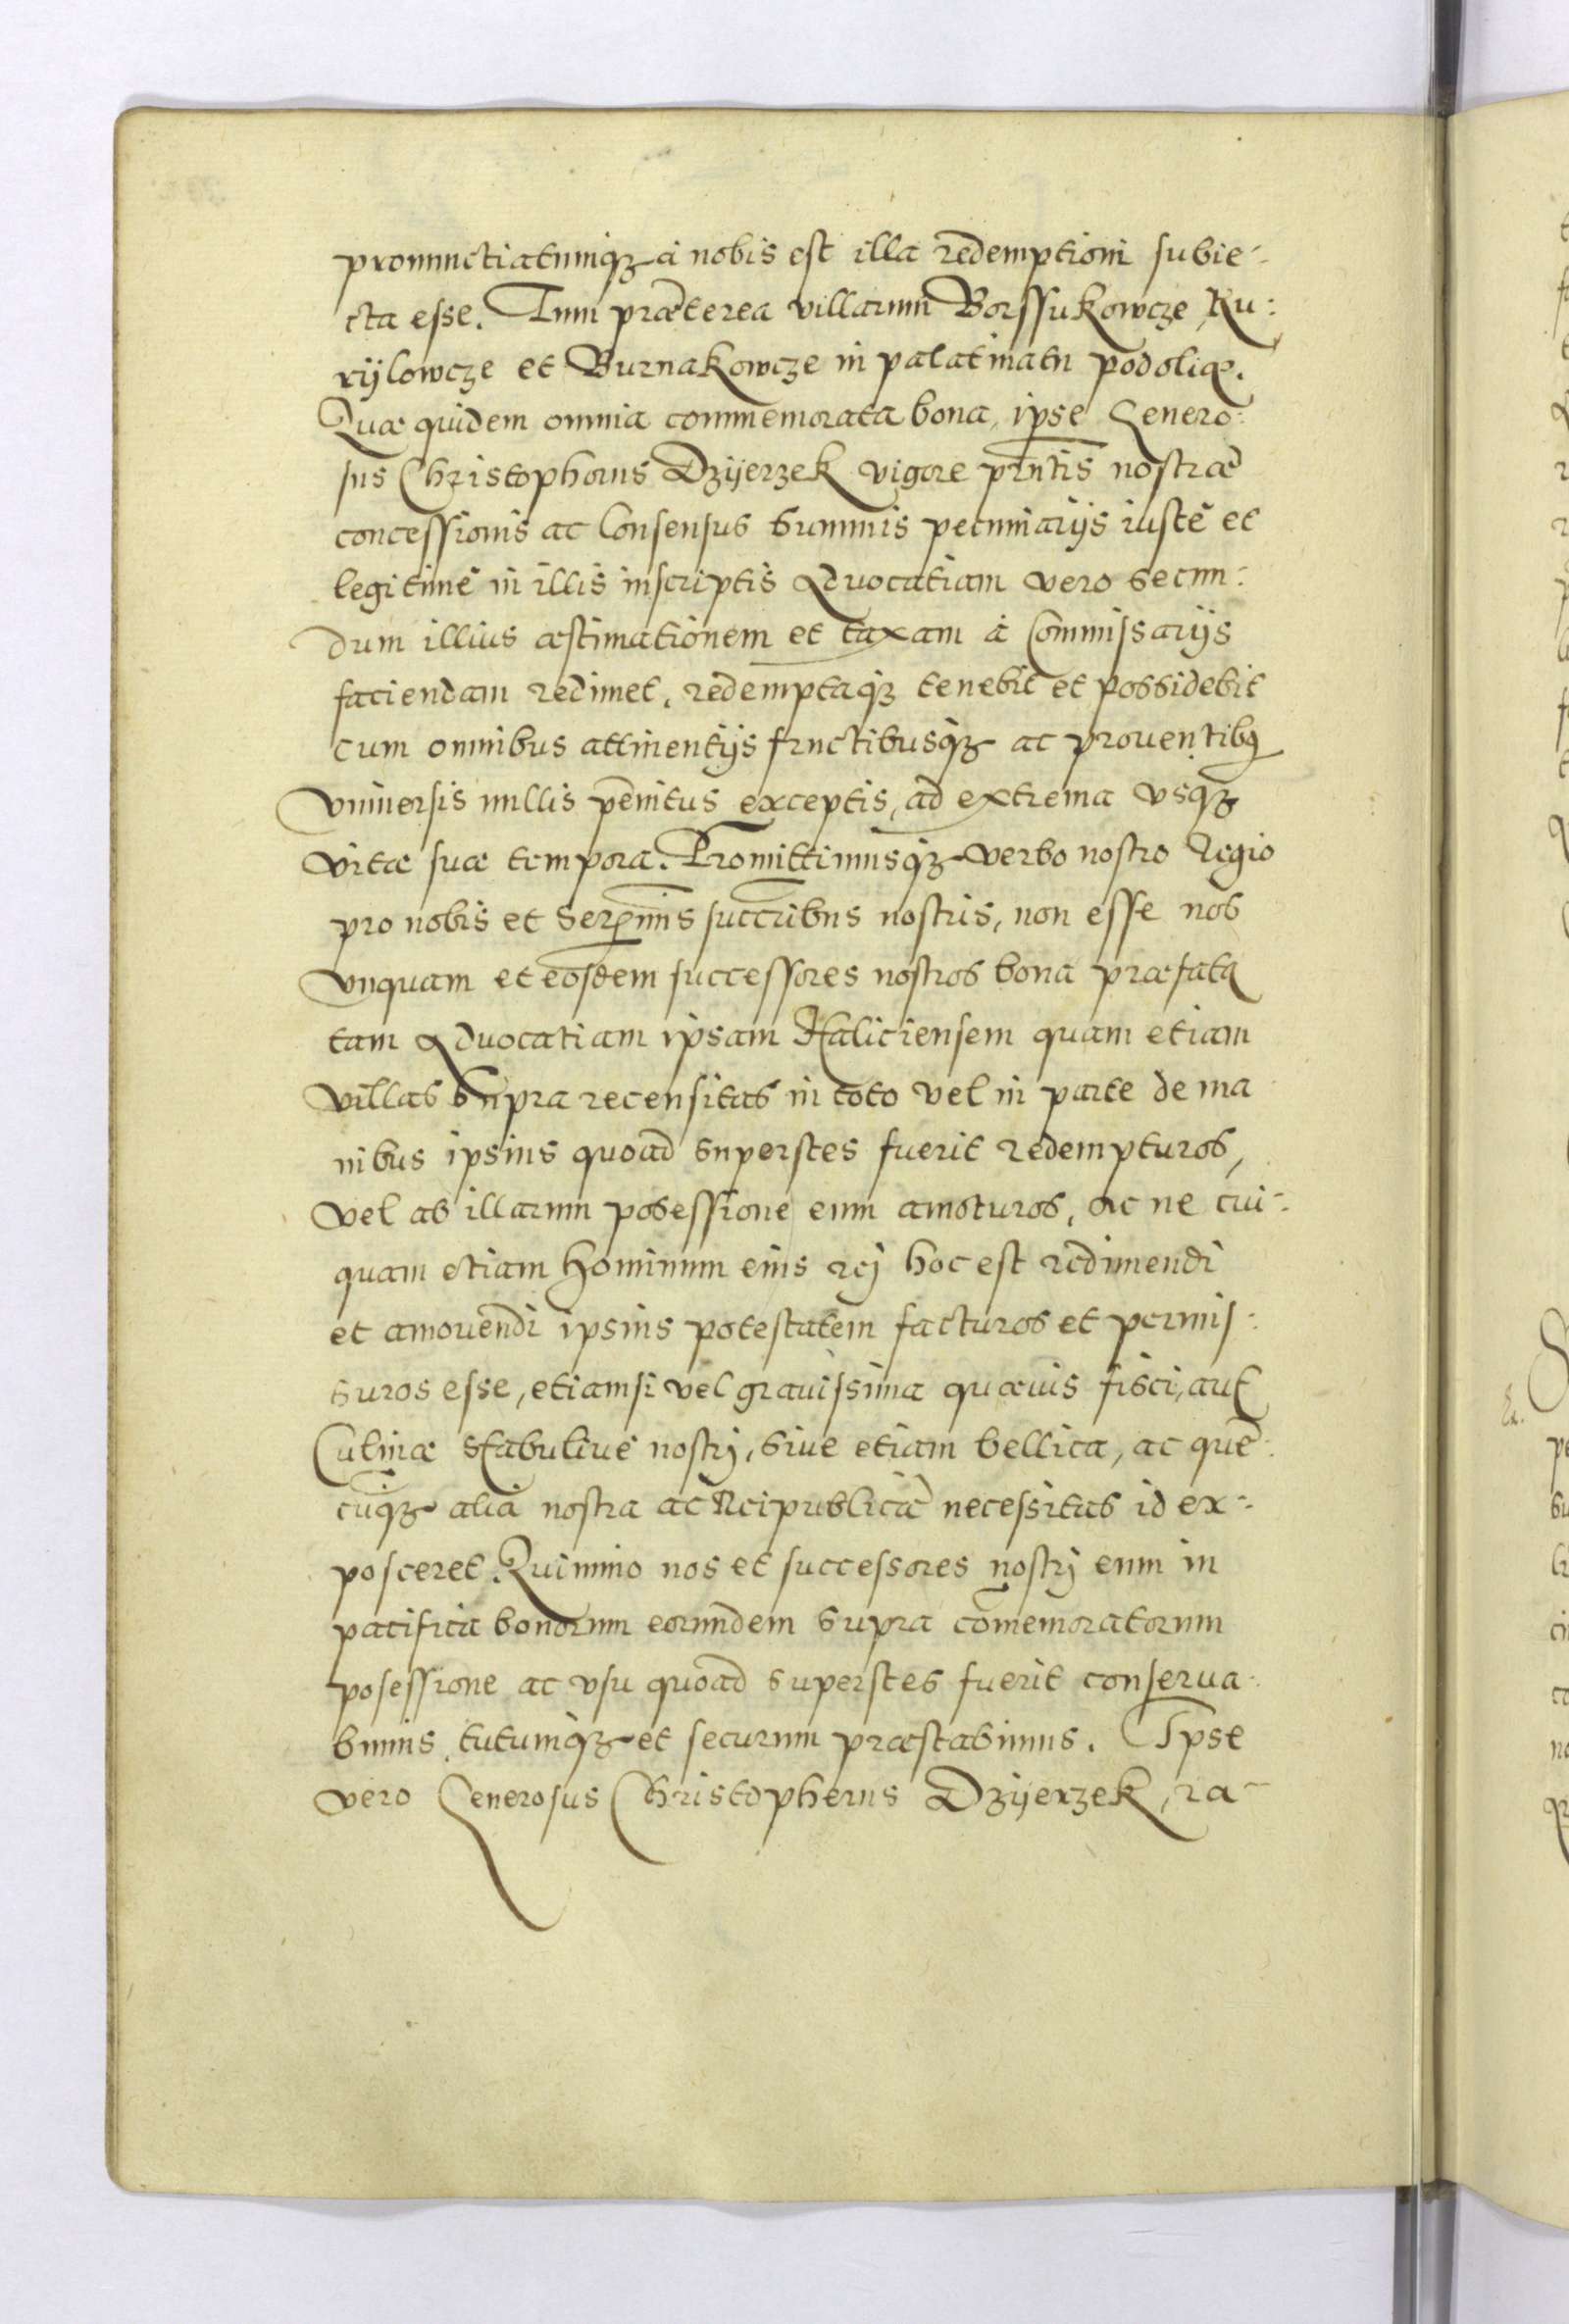 pronunctiatumq; à nobis est illa redemptioni subie-
cta esse. Tum præterea villarum Borssukowcze, Ku:
rÿlowcze et Burnakowcze in palatinatu podoliæ.
Quæ quidem omnia commemorata bona, ipse Genero:
sus Christophorus Dzÿerzek vigore pñtis nostræ
concessionis ac Consensus Summis pecuniarijs iustè et
legitimè in illis inscriptis Aduocatiam vero secun:
dum illius æstimationem et taxam à Commissarijs
faciendam redimet, redemptaq; tenebit et possidebit
cum omnibus attinentijs fructibusq; ac prouentibq
Vniuersis nullis penitus exceptis, ad extrema vsq;
vitæ suæ tempora. Promittimusq; verbo nostro Regio
pro nobis et Serenmis succribus nostris, non esse nos
vnquam et eosdem successores nostros bona præfata
tam Aduocatiam ipsam Haliciensem quam etiam
villas Supra recensitas in toto vel in parte de ma
nibus ipsius quoad superstes fuerit redempturos,
vel ab illarum posessione eum amoturos, ac ne cui-
quam etiam hominum eius rej hoc est redimendi
et amouendi ipsius potestatem facturos et permis:
suros esse, etiamsi vel grauissima quæuis fisci, aut
Culinæ stabuliuè nostrj, siue etiam bellica, ac quæ:
cũq; alia nostra ac Reipublicæ necessitas id ex-
posceret. Quinimo nos et successores nostrj eum in
pacifica bonorum eorundem supra cõmemoratorum
posessione ac vsu quoad superstes fuerit conserua
bimus, tutumq; et securum præstabimus. Ipse
vero Generosus Christopherus Dzÿerzek, ra-